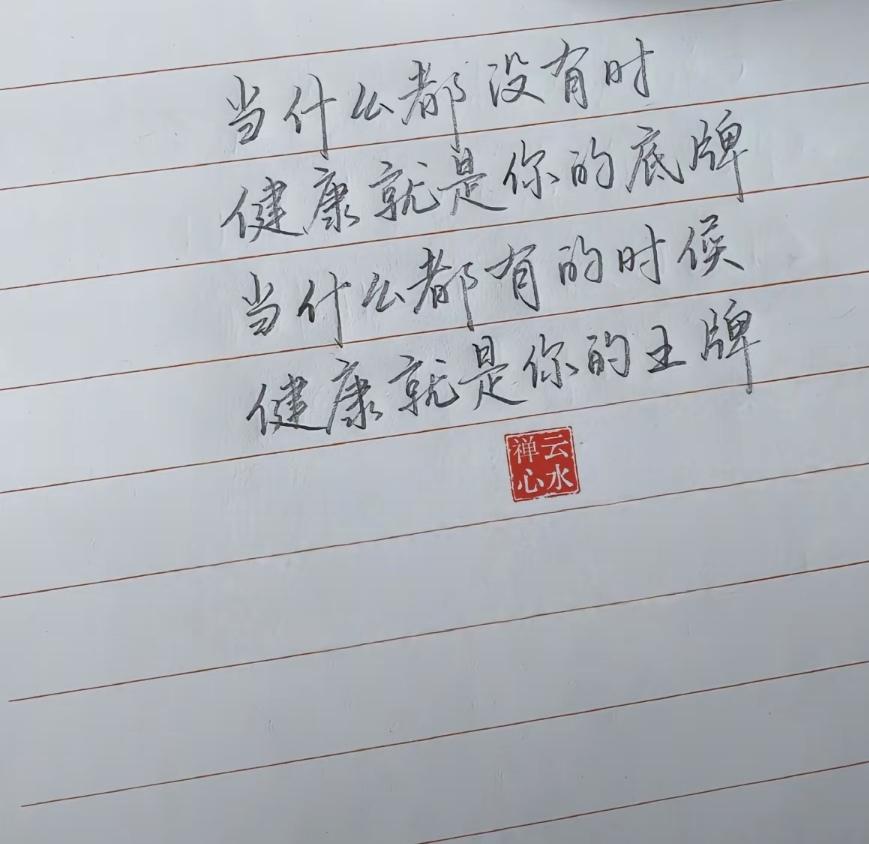 当什么都没有时
健康就是你的底牌
当什么都有的时候
健康就是你的王牌
云水
禅心